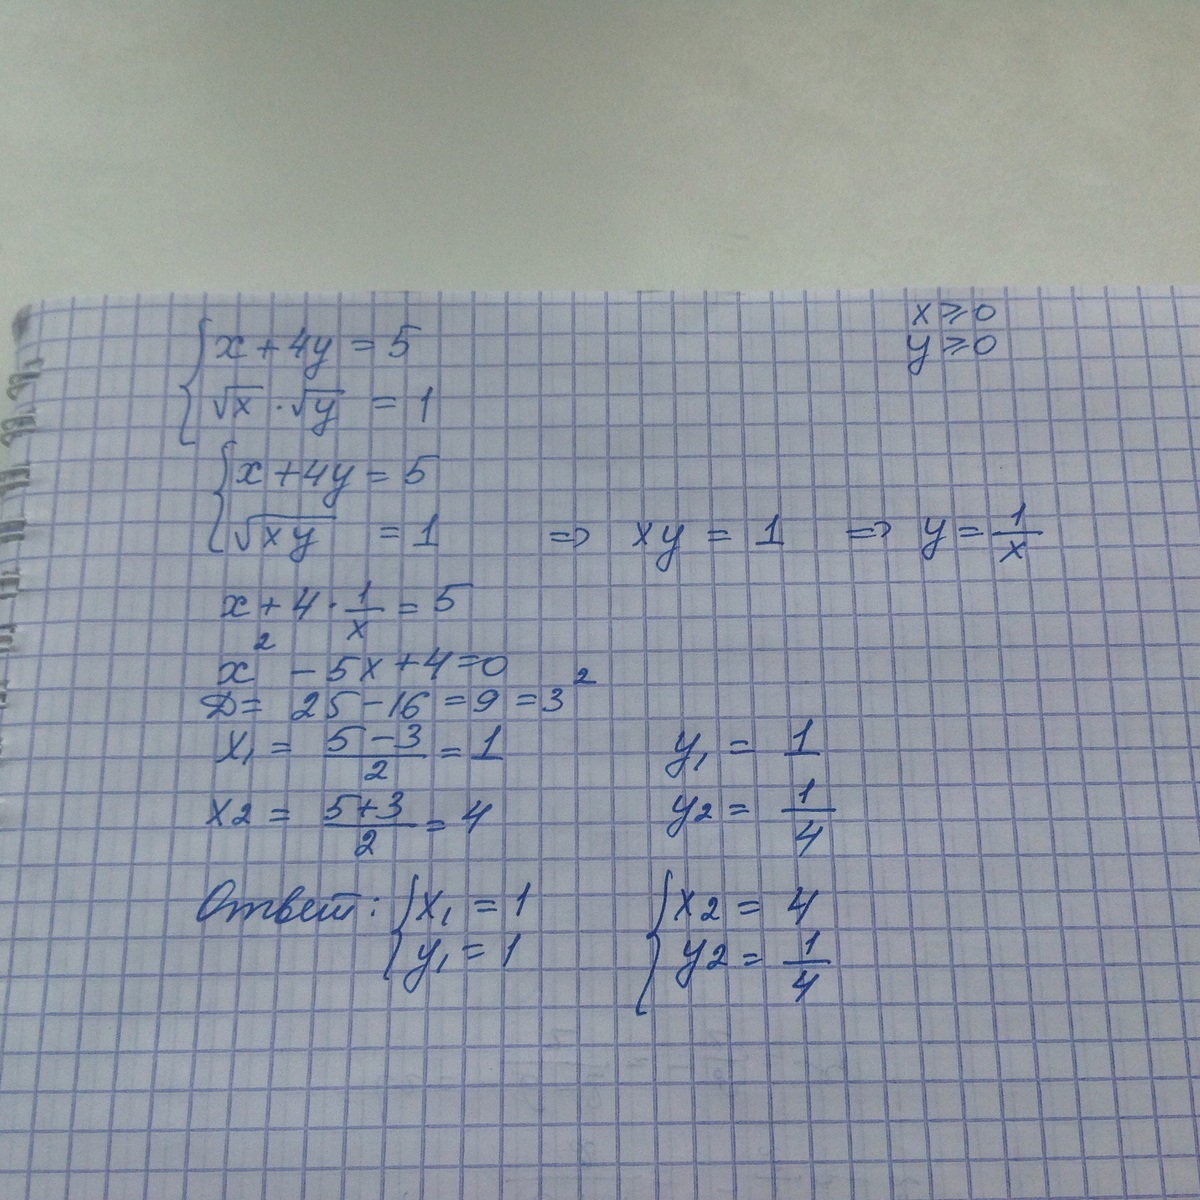 x + 4y = 5
x ⩾ 0
y ⩾ 0
√x · √y = 1
x + 4y = 5
√xy = 1 => xy = 1 => y = 1/x
x + 4 · 1/x = 5
x² - 5x + 4 = 0
D = 25 - 16 = 9 = 3²
x₁ = (5 - 3)/2 = 1 y₁ = 1
x2 = (5 + 3)/2 = 4 y2 = 1/4
Ответ: { x₁ = 1 { x2 = 4
y₁ = 1 y2 = 1/4